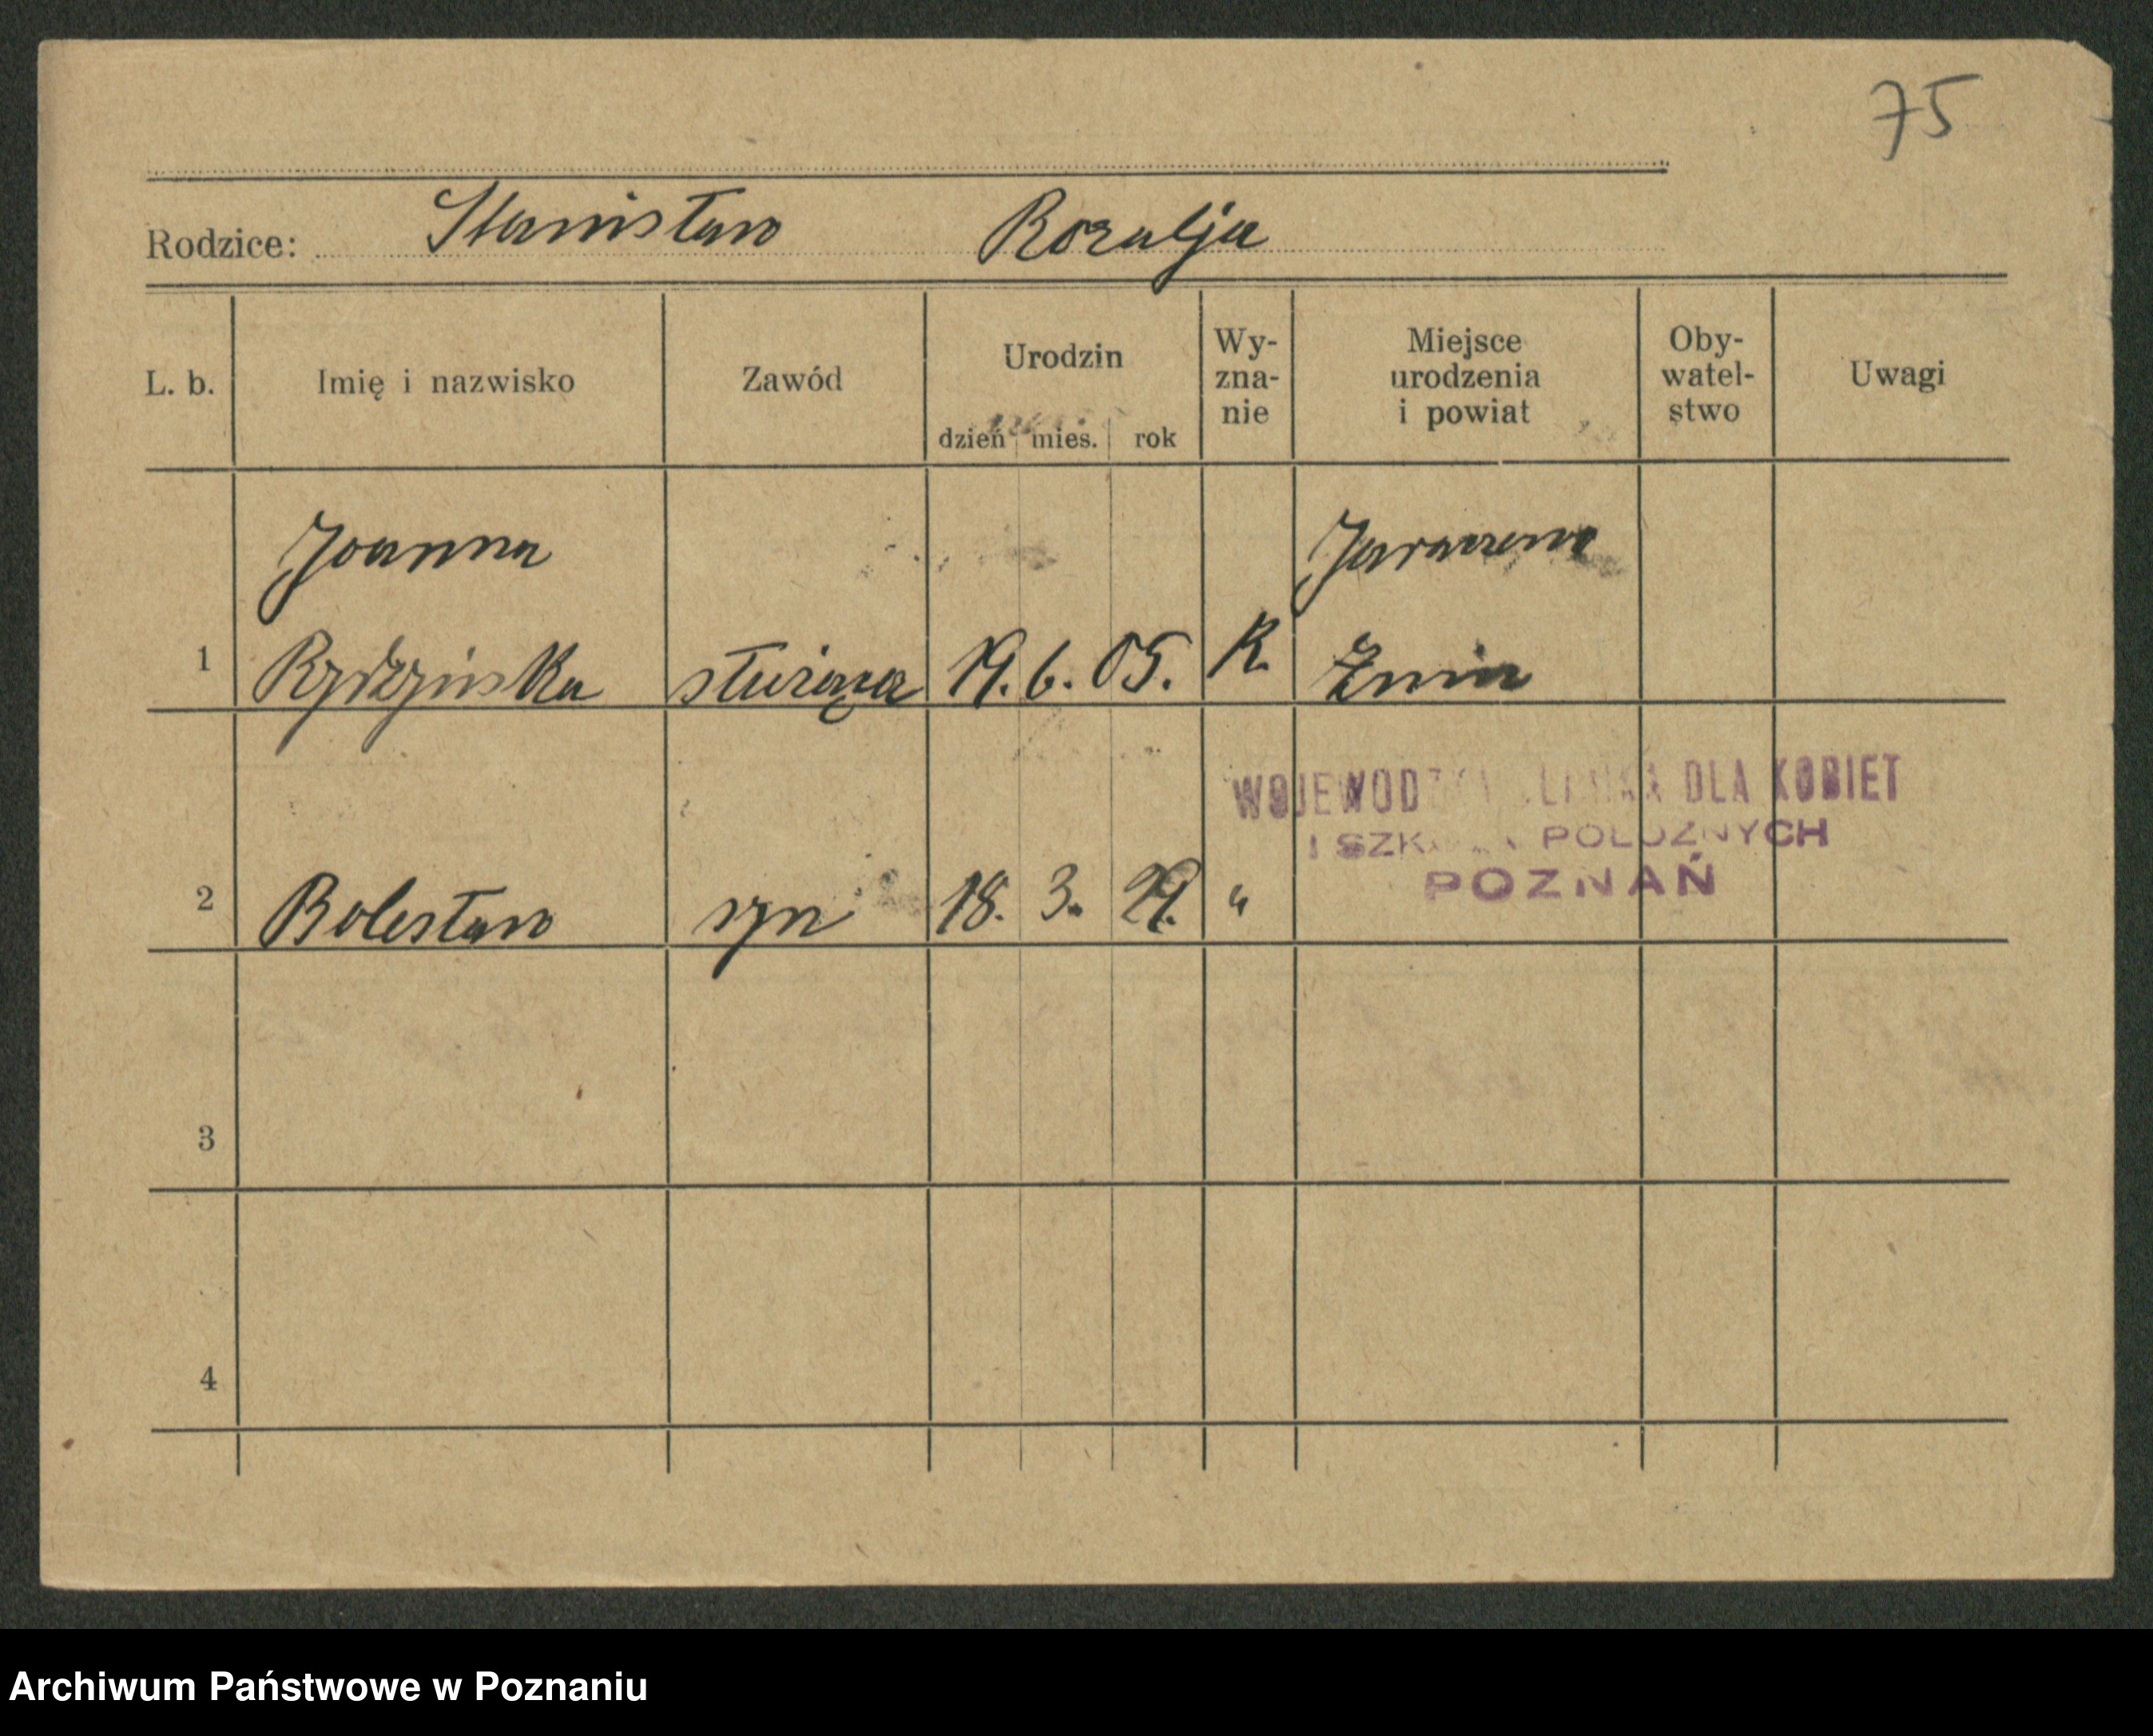 75
Rodzice: Stanisław Rozalja
L. b. Imię i nazwisko Zawód Urodzin dzień mies. rok Wy-zna-nie Miejsce urodzenia i powiat Oby-watel-stwo Uwagi
Joanna
1 Rydzyńska służąca 19. 6. 05. K. Żnin
WOJEWODZKA DLA KOBIET
I POŁOŻNYCH
POZNAŃ
2 Bolesław syn 18. 3. 29. "
3
4
Archiwum Państwowe w Poznaniu